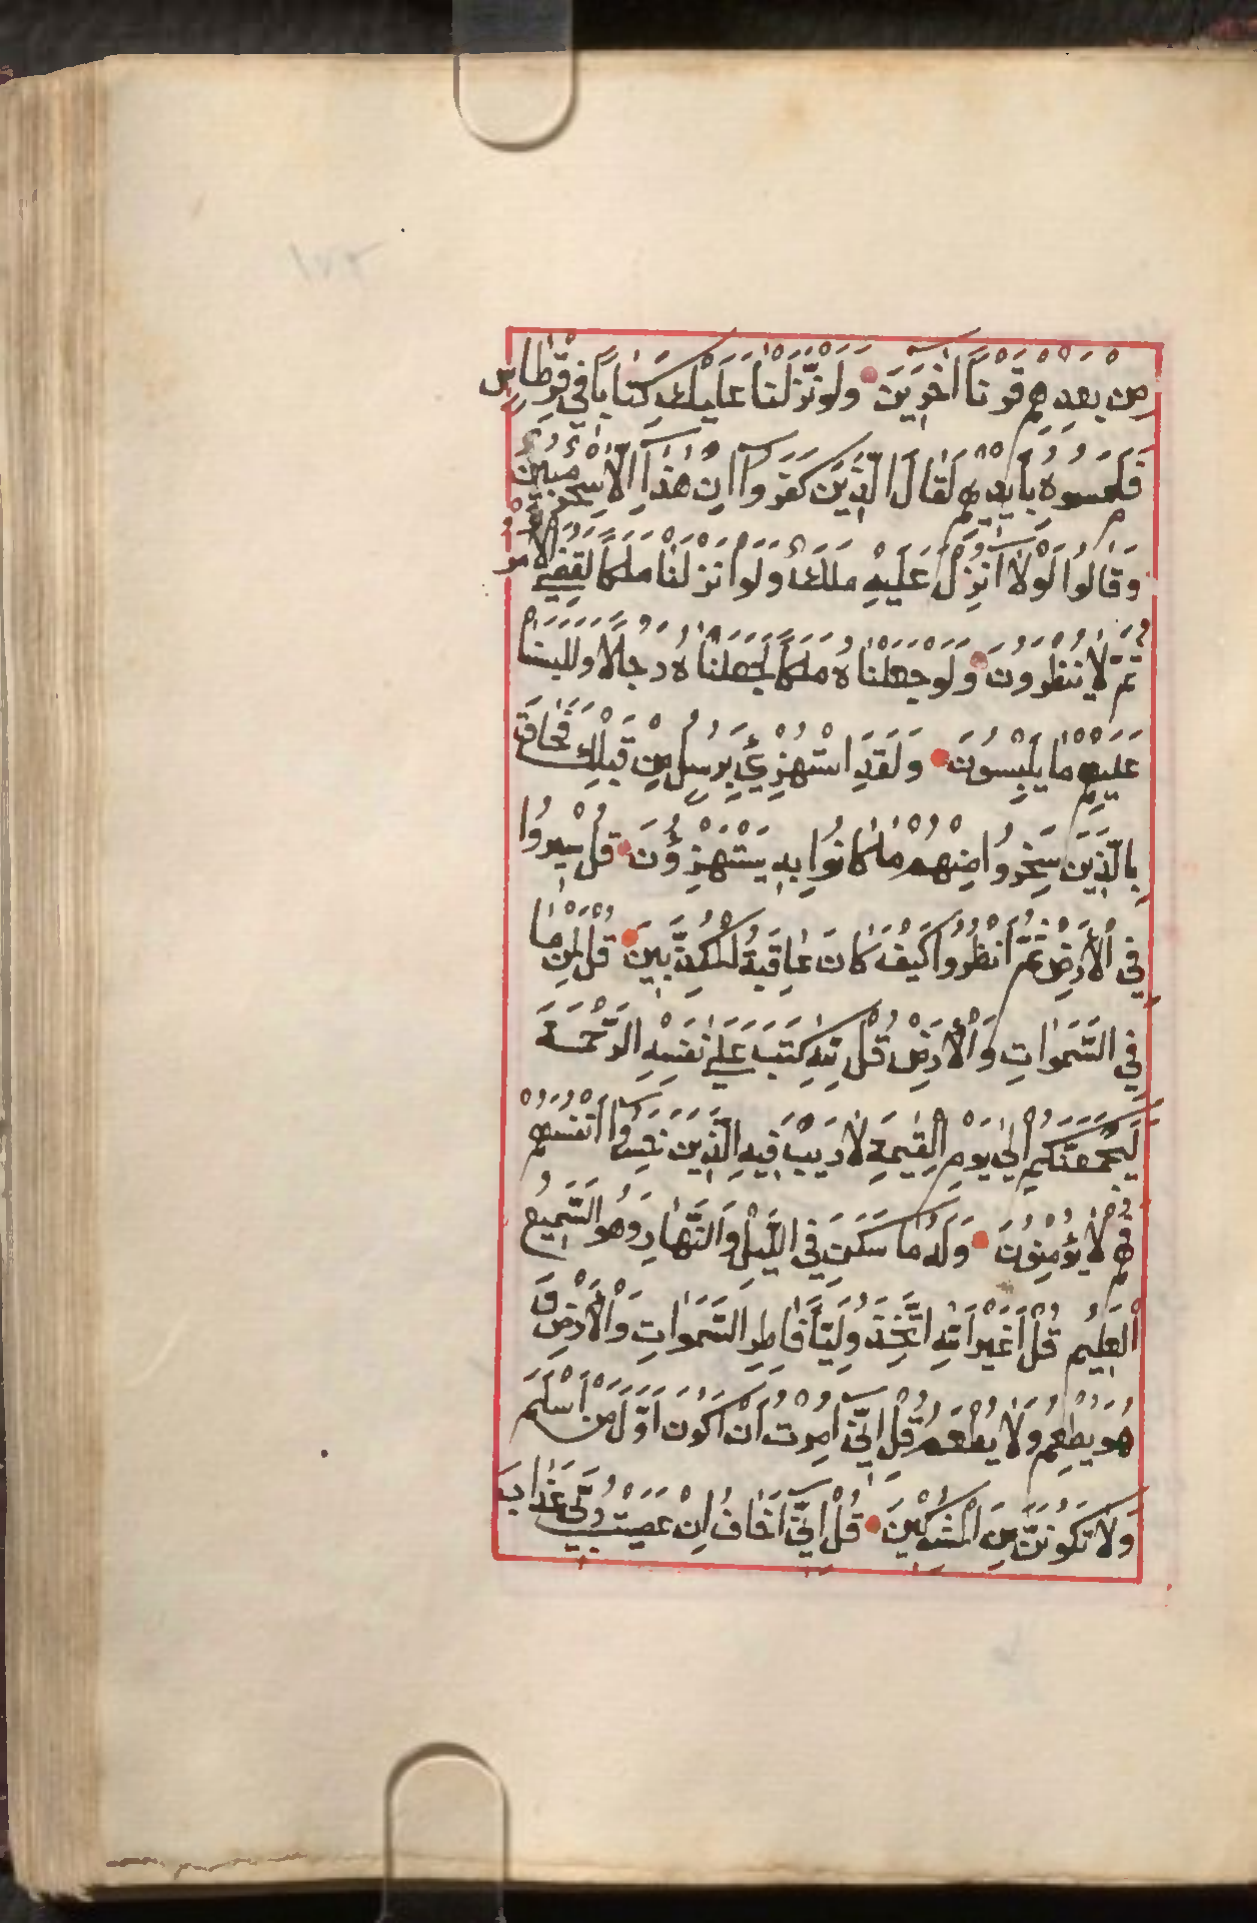 مِنْ بَعْدِهِمْ قَرْنًا اٰخَرِينَ وَلَوْ نَزَّلْنَا عَلَيْكَ كِتَابًا فِي قِرْطَاسٍ
فَلَمَسُوهُ بِأَيْدِيهِمْ لَقَالَ الَّذِينَ كَفَرُوا اِنْ هٰذَا اِلَّا سِحْرٌ مُبِينٌ
وَقَالُوا لَوْلَا اُنْزِلَ عَلَيْهِ مَلَكٌ وَلَوْ اَنْزَلْنَا مَلَكًا لَقُضِيَ الْاَمْرُ
ثُمَّ لَا يُنْظَرُونَ وَلَوْ جَعَلْنَاهُ مَلَكًا لَجَعَلْنَاهُ رَجُلًا وَلَلَبَسْنَا
عَلَيْهِمْ مَا يَلْبِسُونَ وَلَقَدِ اسْتُهْزِئَ بِرُسُلٍ مِنْ قَبْلِكَ فَحَاقَ
بِالَّذِينَ سَخِرُوا مِنْهُمْ مَا كَانُوا بِهِ يَسْتَهْزِؤُنَ قُلْ سِيرُوا
فِي الْأَرْضِ ثُمَّ انْظُرُوا كَيْفَ كَانَ عَاقِبَةُ الْمُكَذِّبِينَ قُلْ لِمَنْ مَا
فِي السَّمَوَاتِ وَالْأَرْضِ قُلْ لِلّٰهِ كَتَبَ عَلَى نَفْسِهِ الرَّحْمَةَ
لَيَجْمَعَنَّكُمْ اِلَى يَوْمِ الْقِيٰمَةِ لَا رَيْبَ فِيهِ الَّذِينَ خَسِرُوا اَنْفُسَهُمْ
فَهُمْ لَا يُؤْمِنُونَ وَلَهُ مَا سَكَنَ فِي اللَّيْلِ وَالنَّهَارِ وَهُوَ السَّمِيعُ
الْعَلِيمُ قُلْ اَغَيْرَ اللّٰهِ اَتَّخِذُ وَلِيًّا فَاطِرِ السَّمَوَاتِ وَالْأَرْضِ وَ
هُوَ يُطْعِمُ وَلَا يُطْعَمُ قُلْ اِنِّي اُمِرْتُ اَنْ اَكُونَ اَوَّلَ مَنْ اَسْلَمَ
وَلَا تَكُونَنَّ مِنَ الْمُشْرِكِينَ قُلْ اِنِّي اَخَافُ اِنْ عَصَيْتُ رَبِّي عَذَابَ